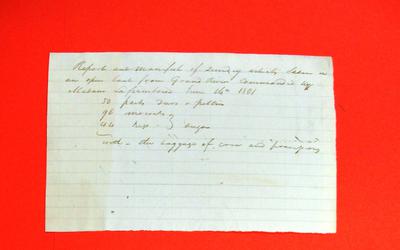 Report and manifest of sundry articles laden in
an open boat from Grand River commanded by
Madam La Framboise June 14th 1801
50 packs Furs & Peltries
96 mococks
44 kegs } Sugar
with the baggage of crew and